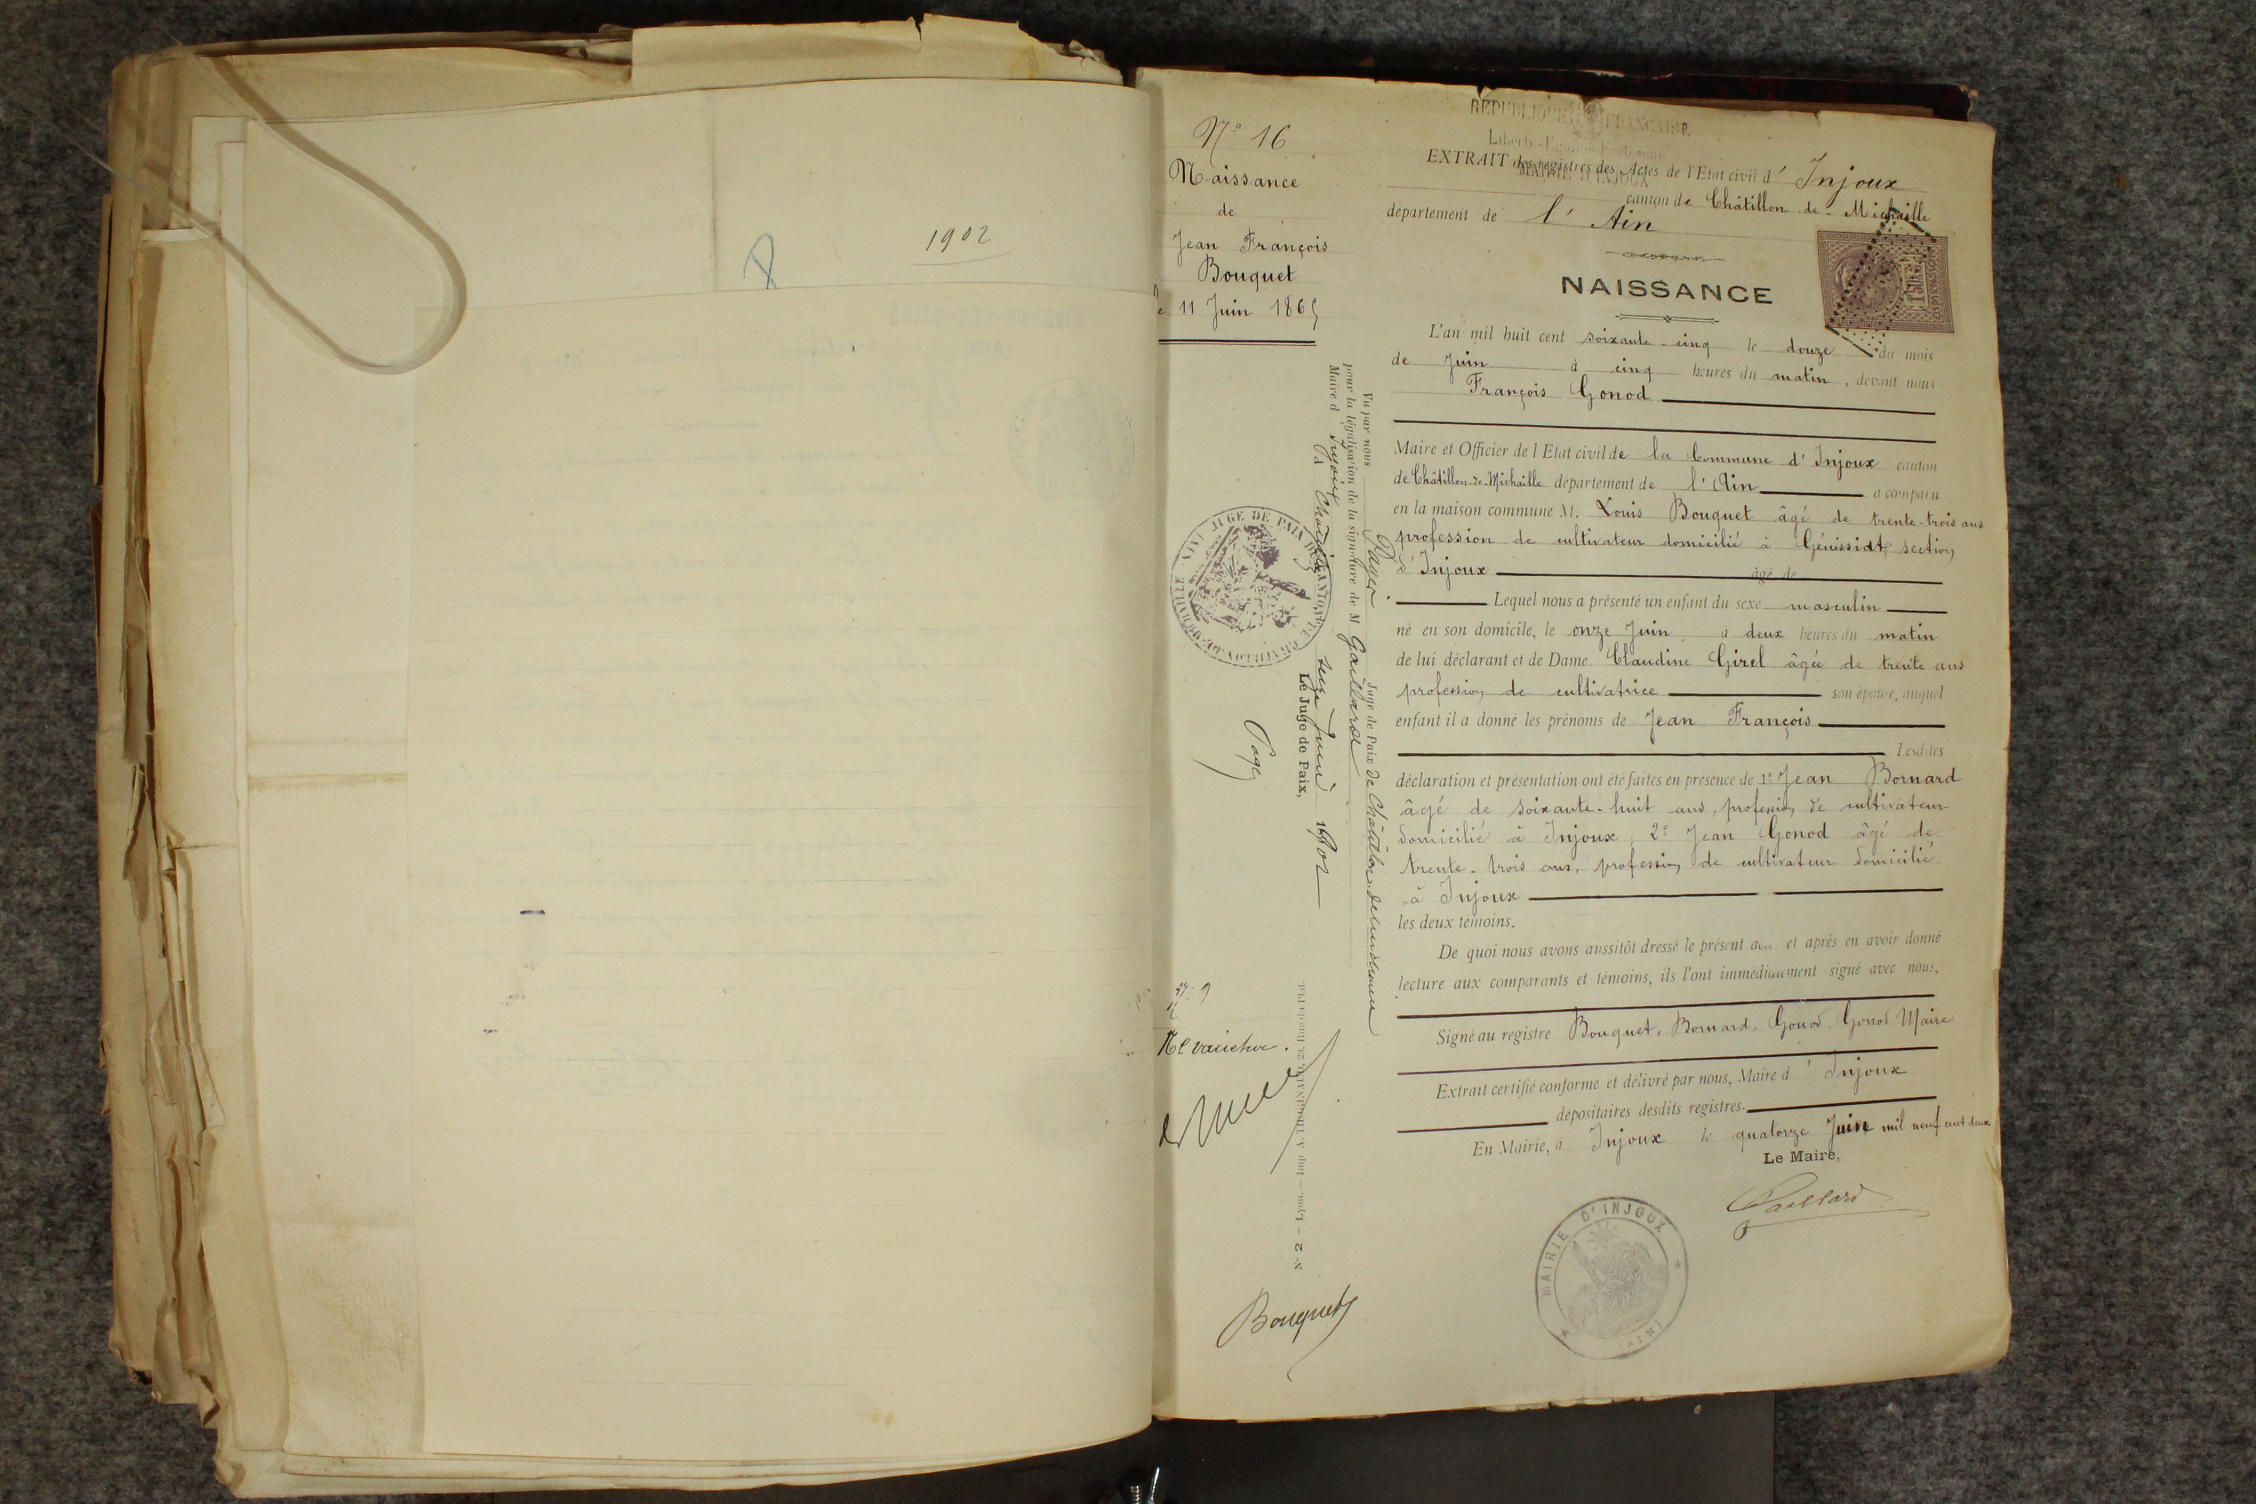 1902
N° 16
Naissance
de
Jean François
Bouquet
11 Juin 1865
RÉPUBLIQUE FRANÇAISE
Liberté-Egalité-Fraternité
MAIRIE D'INJOUX
EXTRAIT des registres des Actes de l'Etat civil d' Injoux
canton de Châtillon de Michaille
département de l'Ain
NAISSANCE
L'an mil huit cent soixante-cinq le douze du mois
de Juin à cinq heures du matin, devant nous
François Gonod
Maire et Officier de l'Etat civil de la Commune d'Injoux canton
de Châtillon-de-Michaille département de l'Ain a comparu
en la maison commune M. Louis Bouquet âgé de trente-trois ans
profession de cultivateur domicilié à Génissiat section
d'Injoux âgé de
Lequel nous a présenté un enfant du sexe masculin
né en son domicile, le onze Juin à deux heures du matin
de lui déclarant et de Dame Claudine Girel âgée de trente ans
profession de cultivatrice son épouse, auquel
enfant il a donné les prénoms de Jean François
Lesdites
déclaration et présentation ont été faites en présence de 1° Jean Bornard
âgé de soixante-huit ans, profession de cultivateur
domicilié à Injoux; 2° Jean Gonod âgé de
trente-trois ans, profession de cultivateur domicilié
à Injoux
les deux témoins.
De quoi nous avons aussitôt dressé le présent acte et après en avoir donné
lecture aux comparants et témoins, ils l'ont immédiatement signé avec nous.
Signé au registre Bouquet, Bornard, Gonod, Gonod Maire
Extrait certifié conforme et délivré par nous, Maire d'Injoux
dépositaires desdits registres.
En Mairie, à Injoux le quatorze Juin mil neuf cent deux
Le Maire,
Gaillard
MAIRIE D'INJOUX
(AIN)
Vu par nous Pager Juge de Paix de Châtillon-de-Michaille
pour la légalisation de la signature de M Gaillard
Maire d'Injoux
A Châtillon seize Juin 1902
Le Juge de Paix,
Page
JUGE DE PAIX DU CANTON DE CHATILLON-DE-MICHAILLE (AIN)
Ne varietur.
N° 2 – Lyon. – Imp.
Bouquet